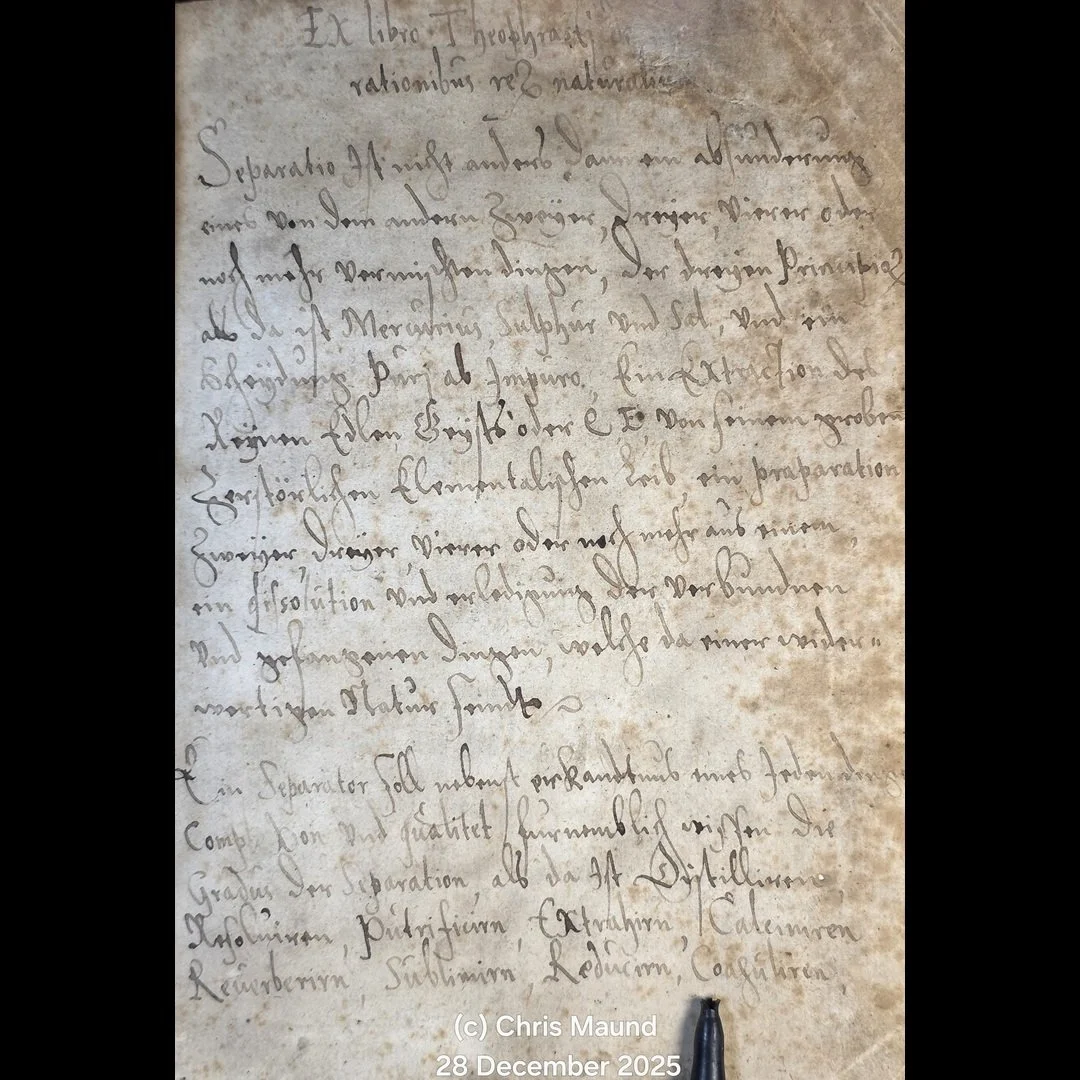 Ex libro Theophrasti
rationibus reꝝ naturaliū
Separatio Ist nicht anders dann ein absünderung
eines von dem andern Zweÿer, Dreÿer, Vierer oder
noch mehr vermischten dingen, der dreyen Principioꝝ
als da ist Mercurius, Sulphur vnd Sal, vnd ein
Scheÿdung Puri ab Impuro, Ein Extraction des
Reÿnen Edlen Geÿsts oder Q E, von seinem groben
Zerstörlichen Elementalischen Leib, ein præparation
Zweÿer, dreÿer, Vierer oder noch mehr aus einem,
ein dissolution vnd erledigung der verbundnen
Vnd gefangenen dingen, welche da einer wider-
wertigen Natur seindt
Ein Separator soll nebenst erkandtnus eines Jeden
vnd qualitet fürnemblich wissen die
Gradus der Separation, als da Ist Distilliren,
Resoluiren, Putrificirn, Extrahirn, Calciniren
Reuerberirn, Sublimirn, Reducirn, Coaguliren,
(c) Chris Maund
28 December 2025